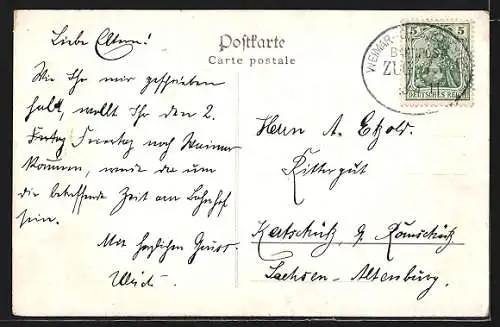 Postkarte
Carte postale
5 5
DEUTSCHES REICH
WEIMAR-
BAHNPOST
ZUG
Liebe Eltern!
Wie Ihr mir geschrieben
habt, wollt Ihr den 2.
Feiertag nach Weimar
kommen, werde da um
die betreffende Zeit am Bahnhof
sein.
Mit herzlichen Gruss
Herrn A. Etzold.
Rittergut
Sachsen-Altenburg.